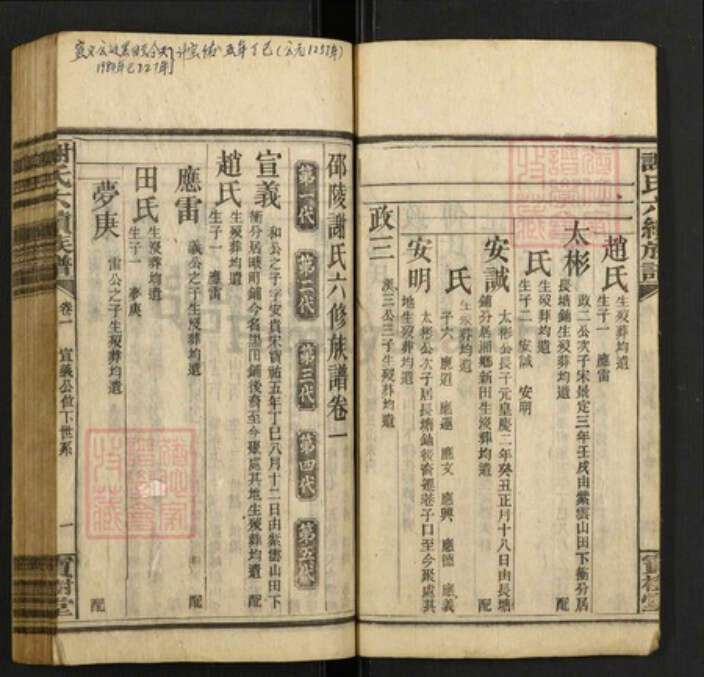 謝氏六續族譜
寶樹堂
趙氏 生歿葬均遺
生子一 應雷
太彬 政二公次子宋景定三年壬戌由紫雲山田下衝分居
長塘鋪生歿葬均遺 配
氏 生歿葬均遺
生子二 安誠 安明
安誠 太彬公長子元皇慶二年癸丑正月十八日由長塘
鋪分居湘鄉新田生歿葬均遺 配
氏 生歿葬均遺
子六 應道 應遜 應文 應興 應德 應義
安明 太彬公次子居長塘鋪後裔遷老子口至今聚處其
地生歿葬均遺
政三 漢三公三子生歿葬均遺
邵陵謝氏六修族譜卷一
第一代 第二代 第三代 第四代 第五代
宣義 和公之子字安貴宋寶祐五年丁巳八月十二日由紫雲山田下
衝分居峨眉鋪今名黑田鋪後裔至今聚處其地生歿葬均遺 配
趙氏 生歿葬均遺
生子一 應雷
應雷 義公之子生歿葬均遺 配
田氏 生歿葬均遺
生子一 夢庚
夢庚 雷公之子生歿葬均遺 配
謝氏六續族譜 卷一 宣義公位下世系 一 寶樹堂
計宋 五年丁巳(公元1257年)
1984年 727年